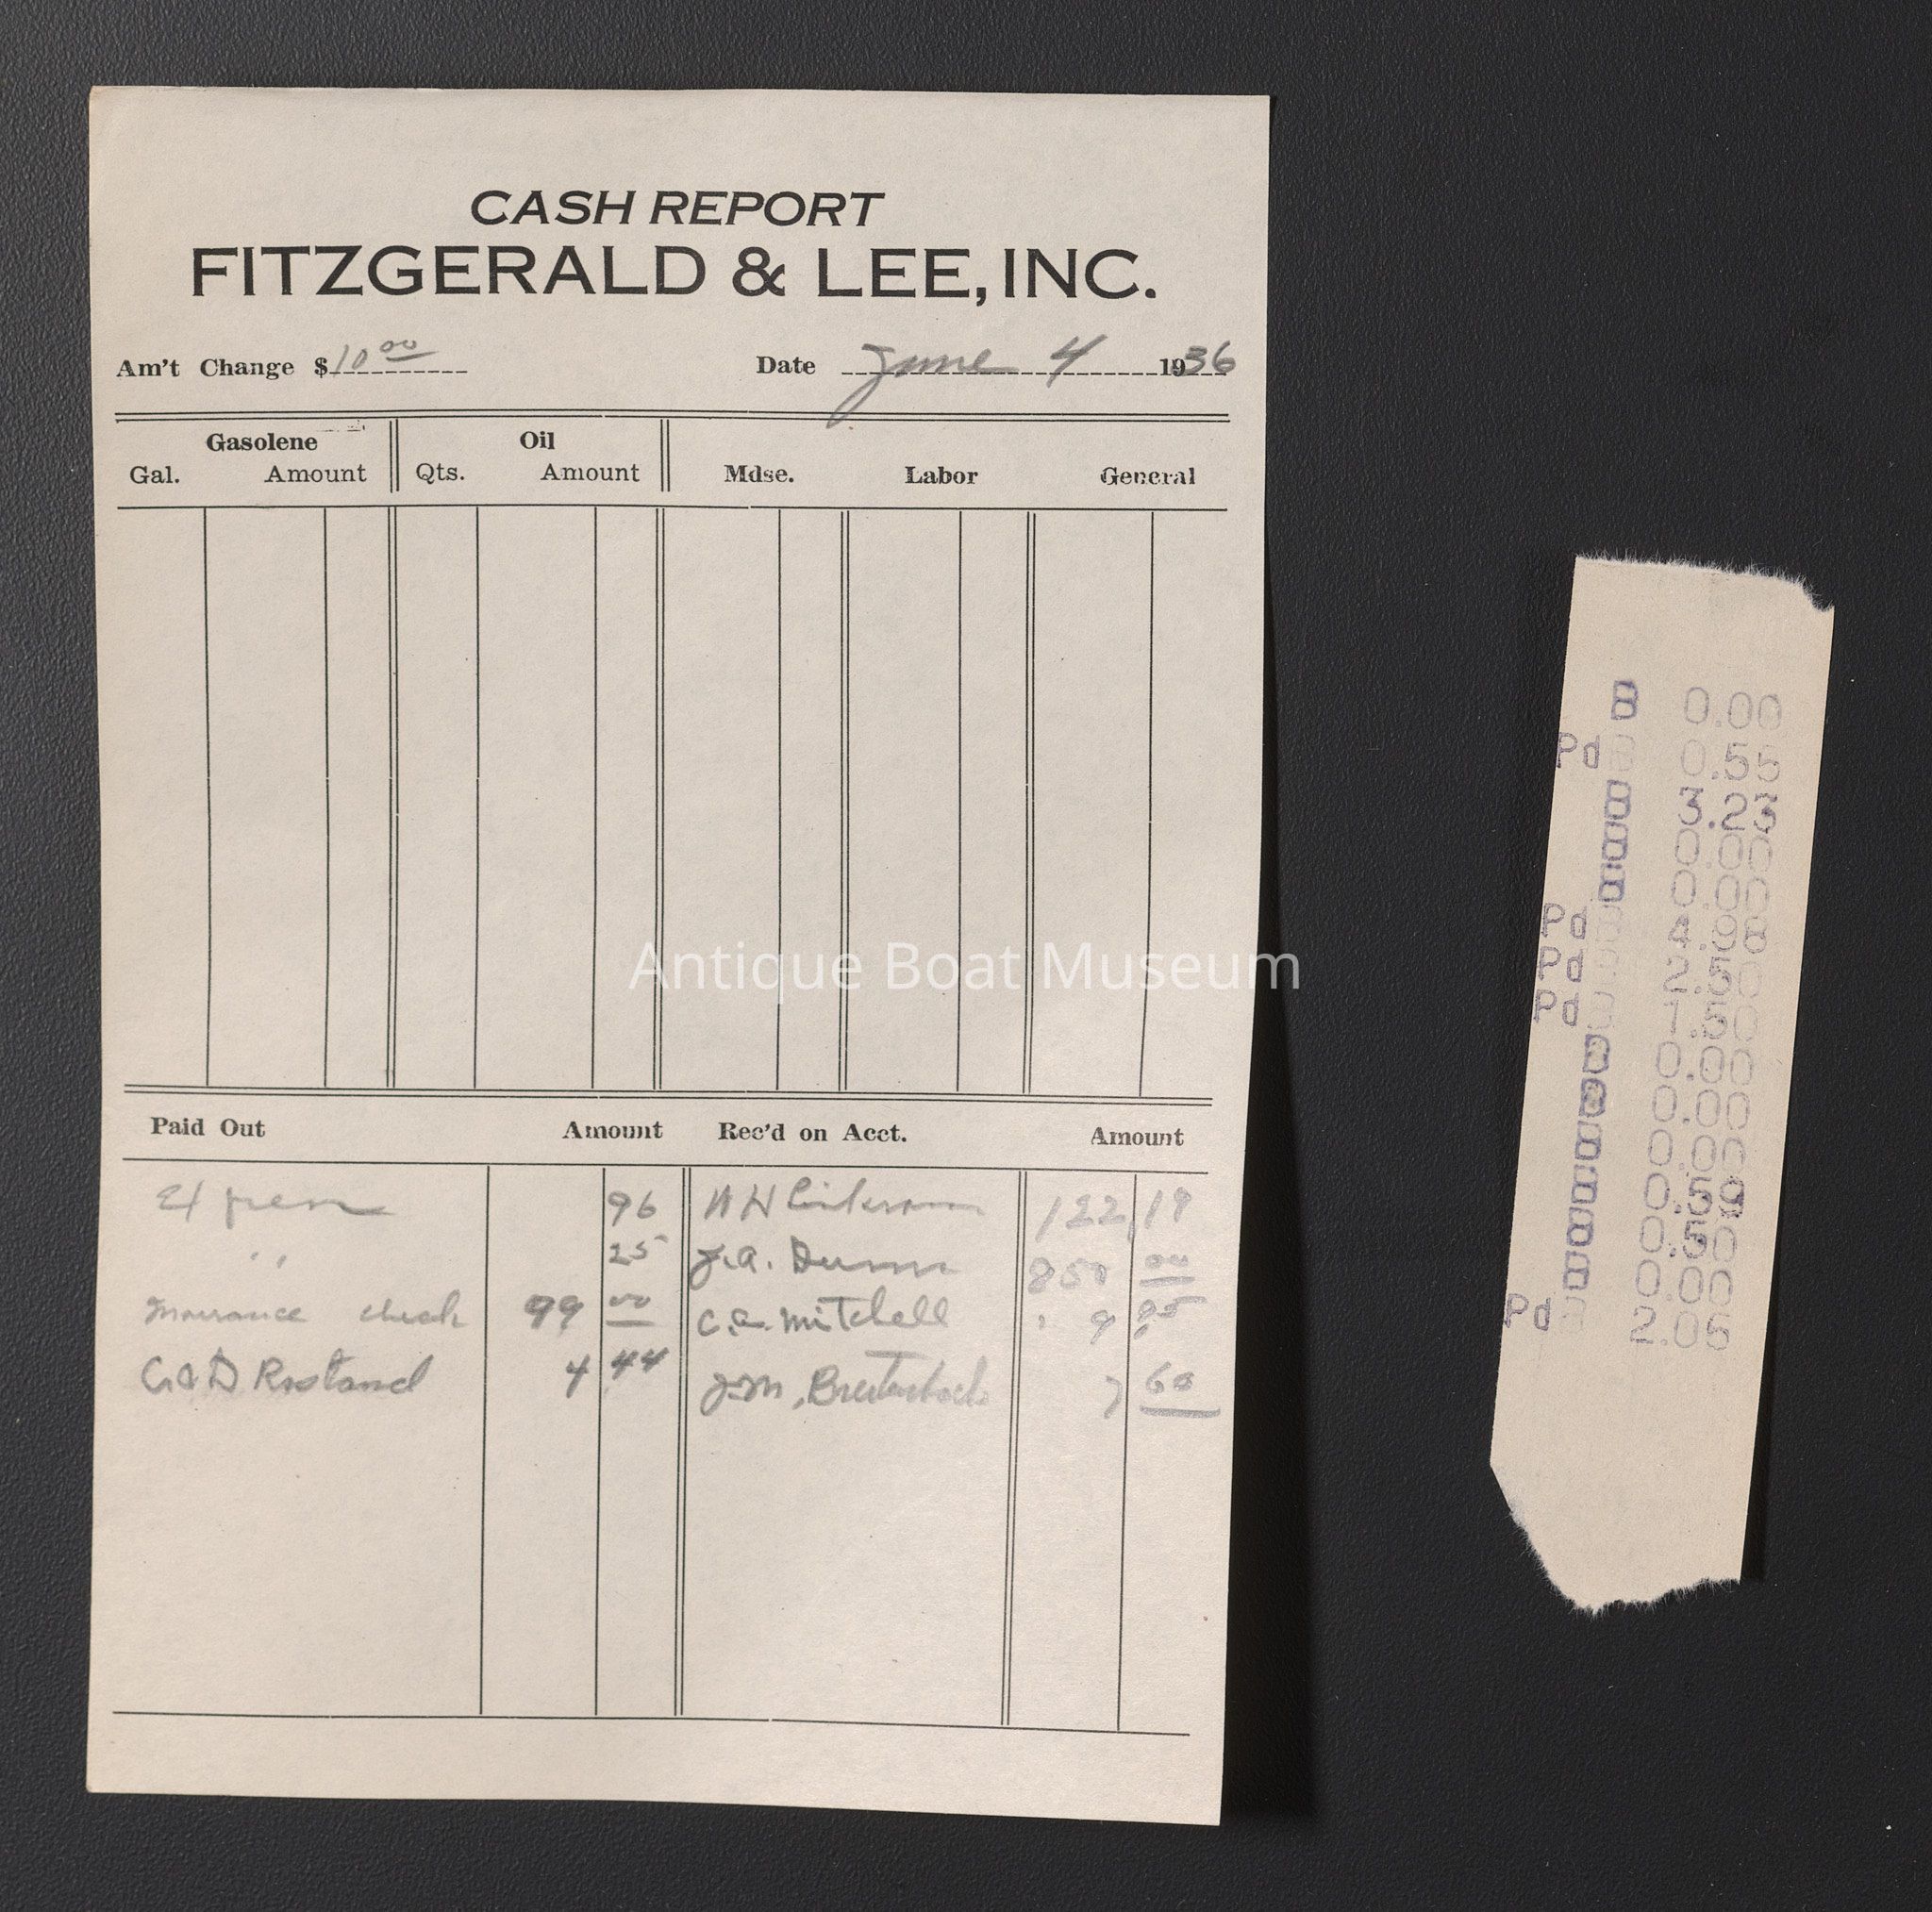 CASH REPORT
FITZGERALD & LEE, INC.
Am't Change $10 00 Date June 4 1936
Gasolene Oil
Gal. Amount Qts. Amount Mdse. Labor General
Antique Boat Museum
Paid Out Amount Rec'd on Acct. Amount
96 122 19
" 25 J.A. Dunn 850 00
Insurance check 99 00 C.A. Mitchell 9 95
4 44 J.M. 7 60
B 0.00
Pd 0.55
B 3.23
B 0.00
B 0.00
Pd 4.98
Pd 2.50
Pd 1.50
0.00
0.00
0.00
0.59
0.50
0.00
Pd 2.05